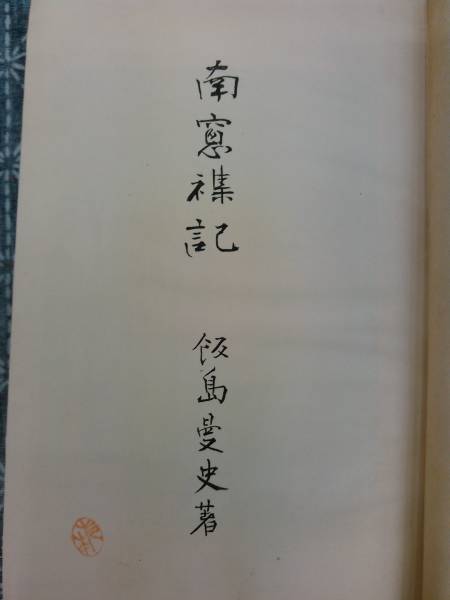 南窓襍記
飯島曼史著